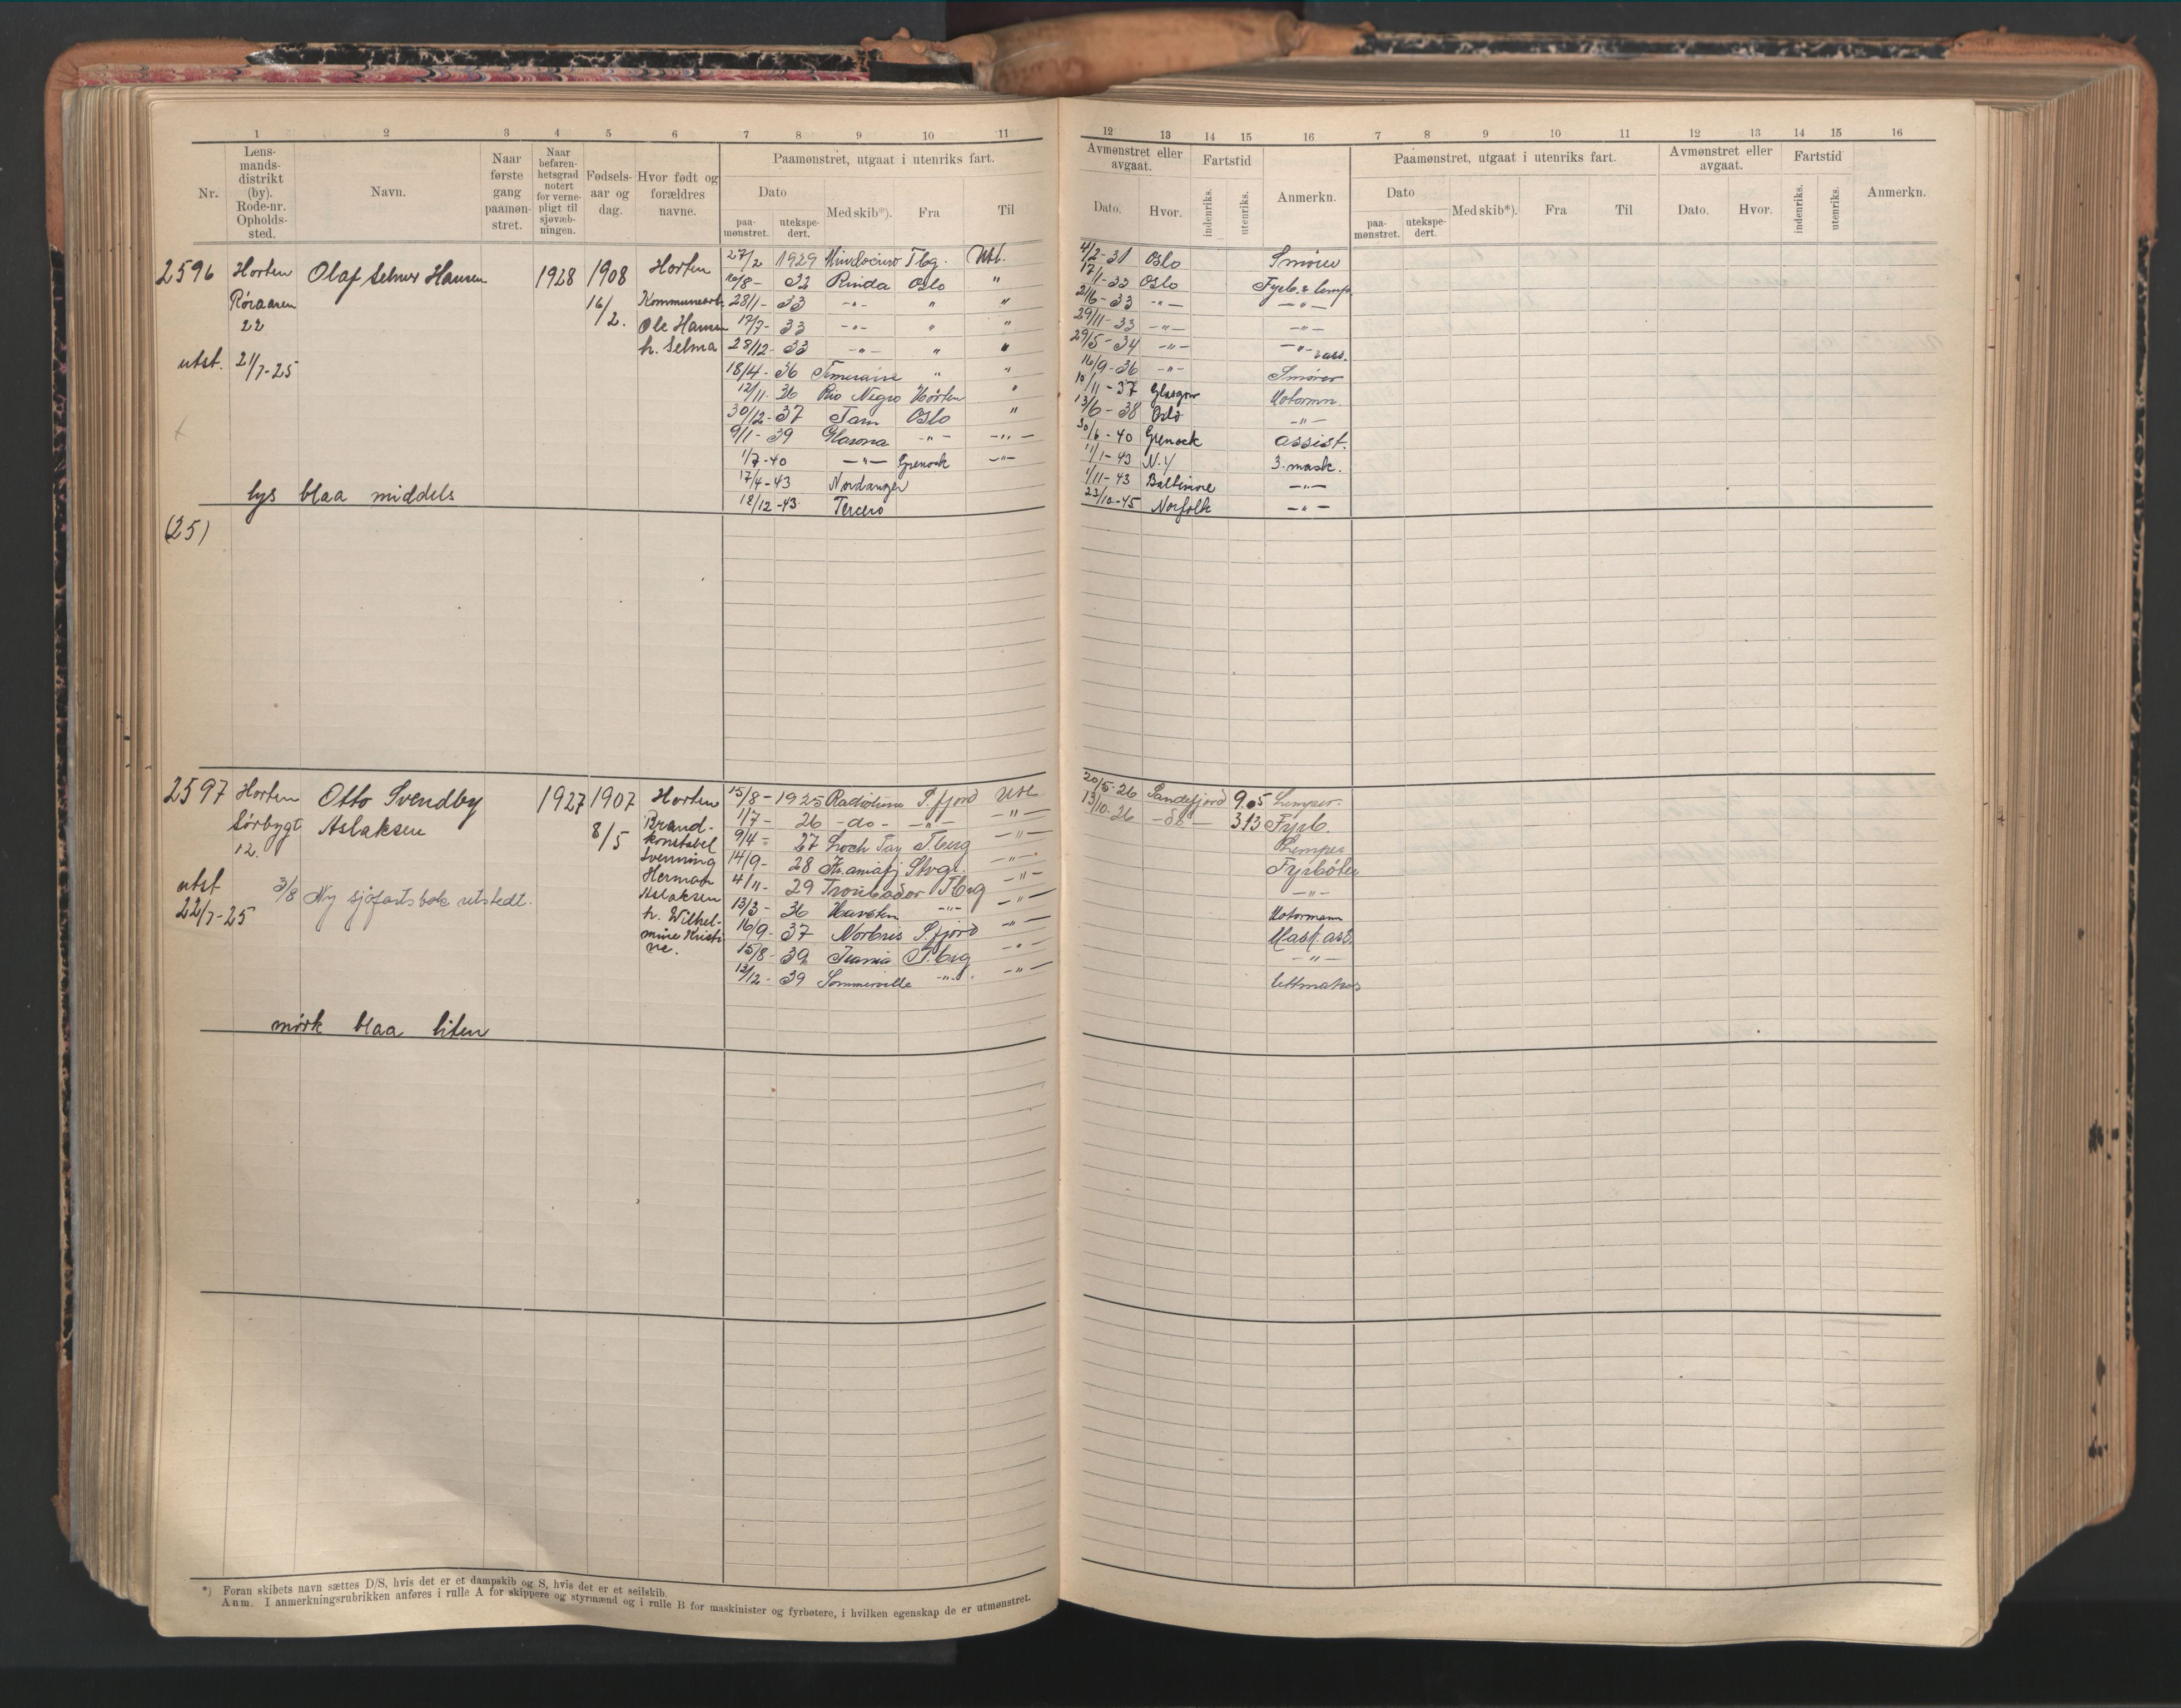 1 2 3 4 5 6 7 8 9 10 11
Nr.
Lens-
mands-
distrikt
(by).
Rode-nr.
Opholds-
sted.
Navn.
Naar
første
gang
paamøn-
stret.
Naar
befaren-
hetsgrad
notert
for verne-
pligt til
sjøvæb-
ningen.
Fødsels-
aar og
dag.
Hvor født og
forældres
navne.
Paamønstret, utgaat i utenriks fart.
Dato
paa-
mønstret.
utekspe-
dert.
Med skib*).
Fra
Til
12 13 14 15 16 7 8 9 10 11 12 13 14 15 16
Avmønstret eller
avgaat.
Dato. Hvor.
Fartstid
indenriks. utenriks.
Anmerkn.
Paamønstret, utgaat i utenriks fart.
Dato
paa-
mønstret.
utekspe-
dert.
Med skib*).
Fra
Til
Avmønstret eller
avgaat.
Dato. Hvor.
Fartstid
indenriks. utenriks.
Anmerkn.
2596 Horten Olaf Selmer Hansen 1928 1908 Horten
Røraaren
22
16/2.
Kommunearb.
Ole Hansen
h. Selma
utst. 21/7-25
27/2 1929 Tbg. Utl. 4/2-31 Oslo Smører
10/8- 32 Rinda Oslo " 17/1-33 Oslo Fyrb. & lemp.
28/1- 33 -"- " " 2/6-33 -"- -"-
17/7- 33 -"- " " 29/11-33 -"- -"-
28/12- 33 -"- " " 29/5-34 -"- -"- ass.
18/4- 36 Temeraire " " 16/9-36 -"- Smører
12/11- 36 Rio Negro Horten " 10/11-37 Glasgow Motormn.
30/12- 37 Tam Oslo " 13/6-38 Oslo -"-
9/1- 39 Glarona -"- -"- 30/6-40 Grenock assist.
1/7-40 -"- Grenock -"- 11/1-43 N.Y 3. mask.
17/4-43 Nordanger 1/11-43 Baltimore -"-
18/12-43 Tercero 23/10-45 Norfolk -"-
lys blaa middels
(25)
2597 Horten Otto Svendby 1927 1907 Horten
Sørbygt Aslaksen 8/5
12.
Brand-
konstabel
Svenning
Herman
Aslaksen
h. Wilhel-
mine Kristi-
ne.
utst
22/7-25
3/8 Ny sjøfartsbok utstedt.
15/8- 1925 S.fjord Utl 20/5-26 Sandefjord 9.05 Lemper.
1/7- 26 -do- -"- -"- 13/10-26 -do- 313 Fyrb.
9/4- 27 Loch Tay T.berg -"- Lemper
14/9- 28 -"- Fyrbøter
4/11- 29 Troubador Tbrg -"- -"-
13/3- 36 -"- -"- Motormann
16/9- 37 Norbris S.fjord -"- Mask. ass.
15/8- 39 T.brg -"- -"-
12/12- 39 Sommerville -"- -"- lettmatros
mørk blaa liten
*) Foran skibets navn sættes D/S, hvis det er et dampskib og S, hvis det er et seilskib.
Anm. I anmerkningsrubrikken anføres i rulle A for skippere og styrmænd og i rulle B for maskinister og fyrbøtere, i hvilken egenskap de er utmønstret.